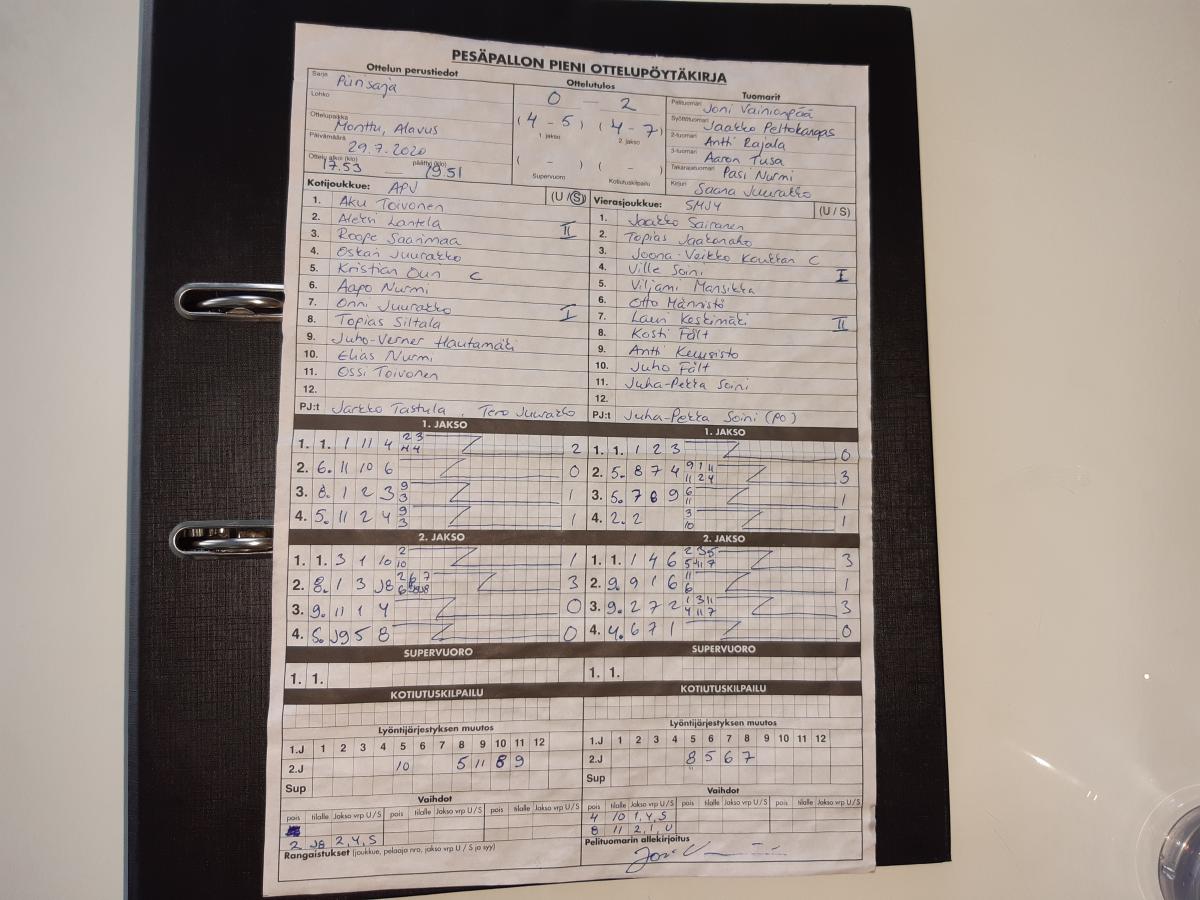 PESÄPALLON PIENI OTTELUPÖYTÄKIRJA
Ottelun perustiedot
Sarja Piirisarja
Lohko
Ottelupaikka Monttu, Alavus
Päivämäärä 29.7.2020
Ottelu alkoi (klo) 17.53 päättyi (klo) 19.51
Ottelutulos
0 – 2
(4 - 5) (4 - 7)
1. jakso 2. jakso
( - ) ( - )
Supervuoro Kotiutuskilpailu
Tuomarit
Pelituomari Joni Vainionpää
Syöttötuomari Jaakko Peltokangas
2-tuomari Antti Rajala
3-tuomari Aaron Tusa
Takarajatuomari Pasi Nurmi
Kirjuri Saana Juurakko
Kotijoukkue: APV (U / S)
1. Aku Toivonen
2. Aleksi Lantela
3. Roope Saarimaa II
4. Oskari Juurakko
5. Kristian Oun C
6. Aapo Nurmi
7. Onni Juurakko
8. Topias Siltala I
9. Juho-Verner Hautamäki
10. Elias Nurmi
11. Ossi Toivonen
12.
PJ:t Jarkko Tastula, Tero Juurakko
Vierasjoukkue: SMJY (U / S)
1. Jaakko Sairanen
2. Topias Jaakonaho
3. Joona-Veikko C
4. Ville Soini I
5. Viljami Mansikka
6. Otto Männistö
7. Lauri Koskimäki II
8. Kosti Fält
9. Antti
10. Juho Fält
11. Juha-Pekka Soini
12.
PJ:t Juha-Pekka Soini (PO)
1. JAKSO
1. 1. 1 11 4 2 3 2
2. 6. 11 10 6 0
3. 8. 1 2 3 9 3 1
4. 5. 11 2 4 9 3 1
1. JAKSO
1. 1. 1 2 3 0
2. 5. 8 7 4 9 1 11 11 2 4 3
3. 5. 7 8 9 6 11 1
4. 2. 2 3 10 1
2. JAKSO
1. 1. 3 1 10 2 10 1
2. 8. 1 3 J8 2 6 7 3
3. 9. 11 1 4 0
4. 5. J9 5 8 0
2. JAKSO
1. 1. 1 4 6 2 3 5 5 11 7 3
2. 9. 9 1 6 11 6 1
3. 9. 2 7 2 1 3 11 4 11 7 3
4. 4. 6 7 1 0
SUPERVUORO
1. 1.
SUPERVUORO
1. 1.
KOTIUTUSKILPAILU
KOTIUTUSKILPAILU
Lyöntijärjestyksen muutos
1.J 1 2 3 4 5 6 7 8 9 10 11 12
2.J 10 5 11 8 9
Sup
Lyöntijärjestyksen muutos
1.J 1 2 3 4 5 6 7 8 9 10 11 12
2.J 8 5 6 7
Sup
Vaihdot
pois tilalle Jakso vrp U / S pois tilalle Jakso vrp U / S pois tilalle Jakso vrp U / S
2 J8 2, 4, S
Rangaistukset (joukkue, pelaaja nro, jakso vrp U / S ja syy)
Vaihdot
pois tilalle Jakso vrp U / S pois tilalle Jakso vrp U / S pois tilalle Jakso vrp U / S
4 10 1, 4, S
8 11 2, 1, U
Pelituomarin allekirjoitus